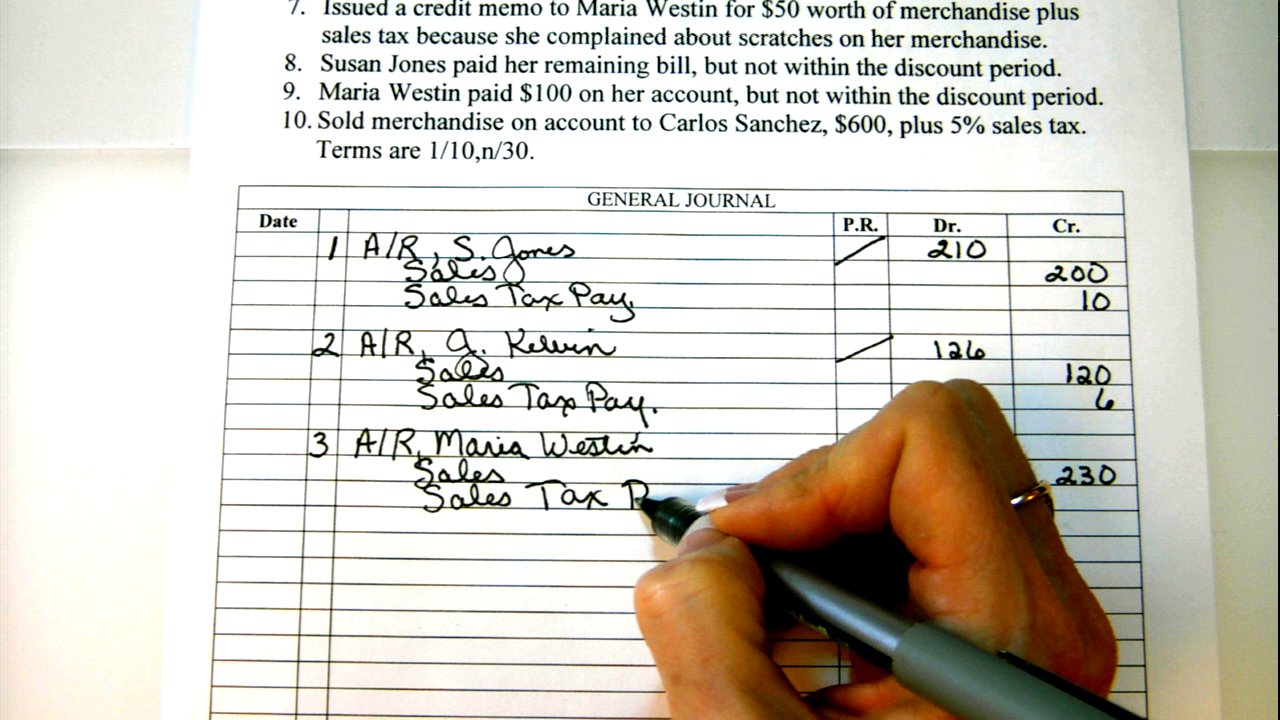 7. Issued a credit memo to Maria Westin for $50 worth of merchandise plus
sales tax because she complained about scratches on her merchandise.
8. Susan Jones paid her remaining bill, but not within the discount period.
9. Maria Westin paid $100 on her account, but not within the discount period.
10. Sold merchandise on account to Carlos Sanchez, $600, plus 5% sales tax.
Terms are 1/10,n/30.
GENERAL JOURNAL
Date P.R. Dr. Cr.
1 A/R, S. Jones 210
Sales 200
Sales Tax Pay. 10
2 A/R, G. Kelvin 126
Sales 120
Sales Tax Pay. 6
3 A/R, Maria Westin
Sales 230
Sales Tax P